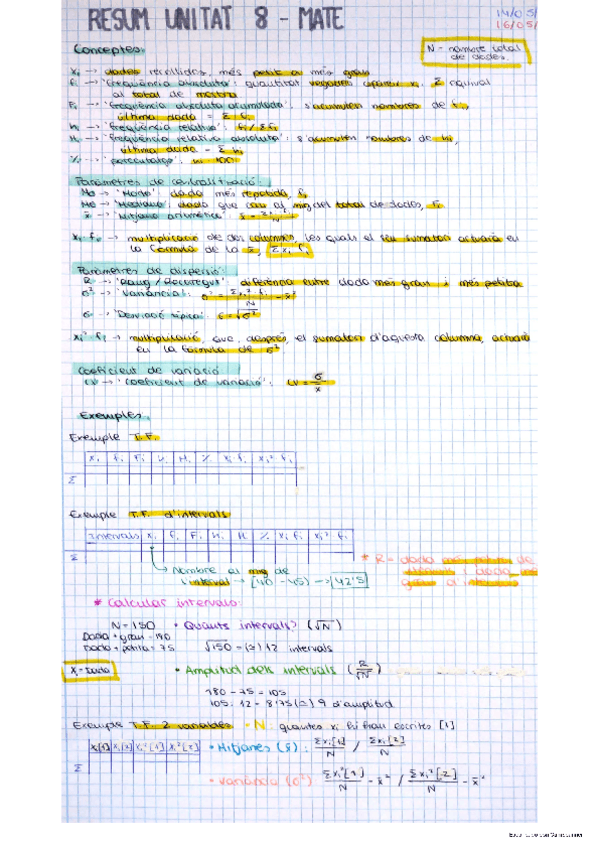 RESUM UNITAT 8 - MATE
14/05/
16/05/
Conceptes.
N - nombre total
de dades.
xi -> dades recollides, més petit a més gran
fi -> 'Freqüència absoluta' quantitat vegades apareix xi. Σ equival
al total de mostra
Fi -> 'Freqüència absoluta acumulada': s'acumulen nombres de fi,
última dada = Σ fi
hi -> 'freqüència relativa': fi/Σfi
Hi -> 'freqüència relativa absoluta': s'acumulen nombres de hi,
última dada = Σ hi
% -> 'percentatge': hi·100
Paràmetres de centralització:
Mo -> 'Moda': dada més repetida, fi
Me -> 'Mediana': dada que cau al mig del total de dades, Fi
x̄ -> 'Mitjana aritmètica':
xi·fi -> multiplicació de dos columnes, les quals el seu sumatori actuarà en
la fórmula de la x̄, Σxi·fi
Paràmetres de dispersió:
R -> 'Rang/Recorregut': diferència entre dada més gran i més petita
σ² -> 'Variància': σ² = Σxi²·fi/N - x̄²
σ -> 'Desviació típica': σ=√σ²
xi²·fi -> multiplicació, que, després, el sumatori d'aquesta columna, actuarà
en la fórmula de σ².
Coeficient de variació
CV -> 'Coeficient de variació': CV = σ/x̄
Exemples.
Exemple T.F.
xi fi Fi hi Hi % xi·fi xi²·fi
Σ
Exemple T.F. d'intervals
Intervals xi fi Fi hi Hi % xi·fi xi²·fi
Σ
Nombre al mig de
l'interval -> [40 - 45) -> 42'5
* R = dada més petita de
* Calcular intervals:
N = 150 • Quants intervals? (√N)
Dada + gran = 180
Dada + petita = 75 √150 = (≈) 12 intervals
xi = Dada
• Amplitud dels intervals (R/√N)
180 - 75 = 105
105 : 12 = 8'75 (≈) 9 d'amplitud
Exemple T.F. 2 variables - N: quantes xi hi han escrites [1]
xi[1] xi[2] xi²[1] xi²[2] • Mitjanes (x̄): Σxi[1]/N / Σxi[2]/N
Σ
• Variància (σ²) Σxi²[1]/N - x̄² / Σxi²[2]/N - x̄²